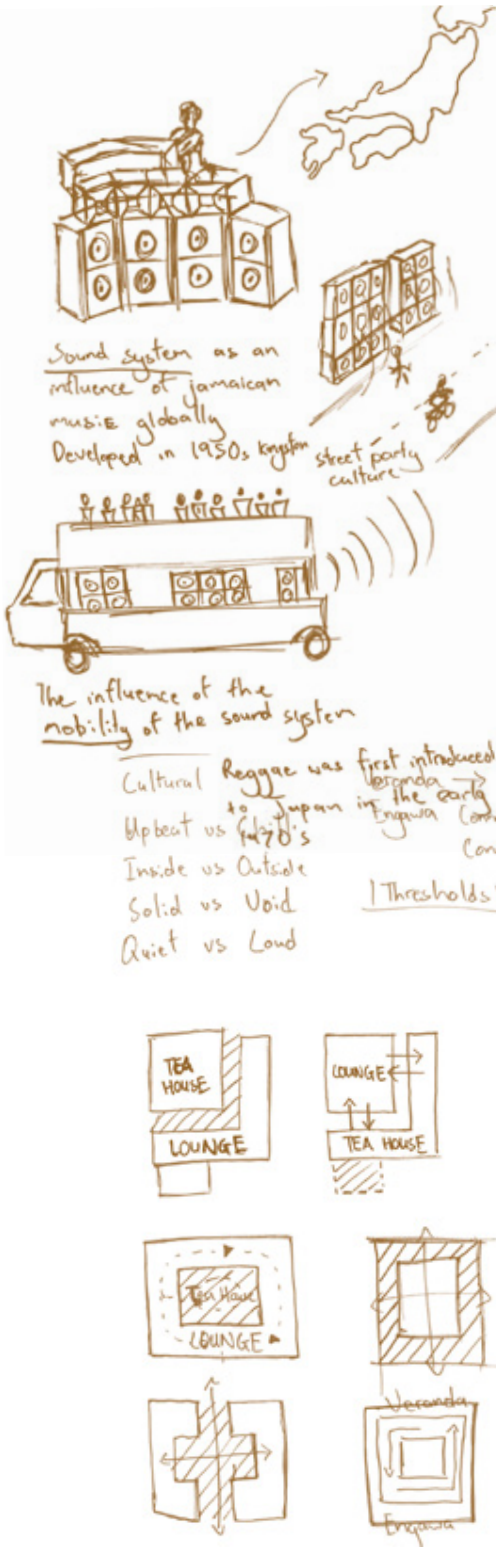 Sound system as an
influence of jamaican
music globally
Developed in 1950s kingston
street party
culture
The influence of the
mobility of the sound system
Cultural
Reggae was first introduced
to Japan in the early
1970's
Veranda
Engawa
Upbeat vs
Inside vs Outside
Solid vs Void
Quiet vs Loud
Thresholds
TEA
HOUSE
LOUNGE
LOUNGE
TEA HOUSE
Tea House
LOUNGE
Veranda
Engawa